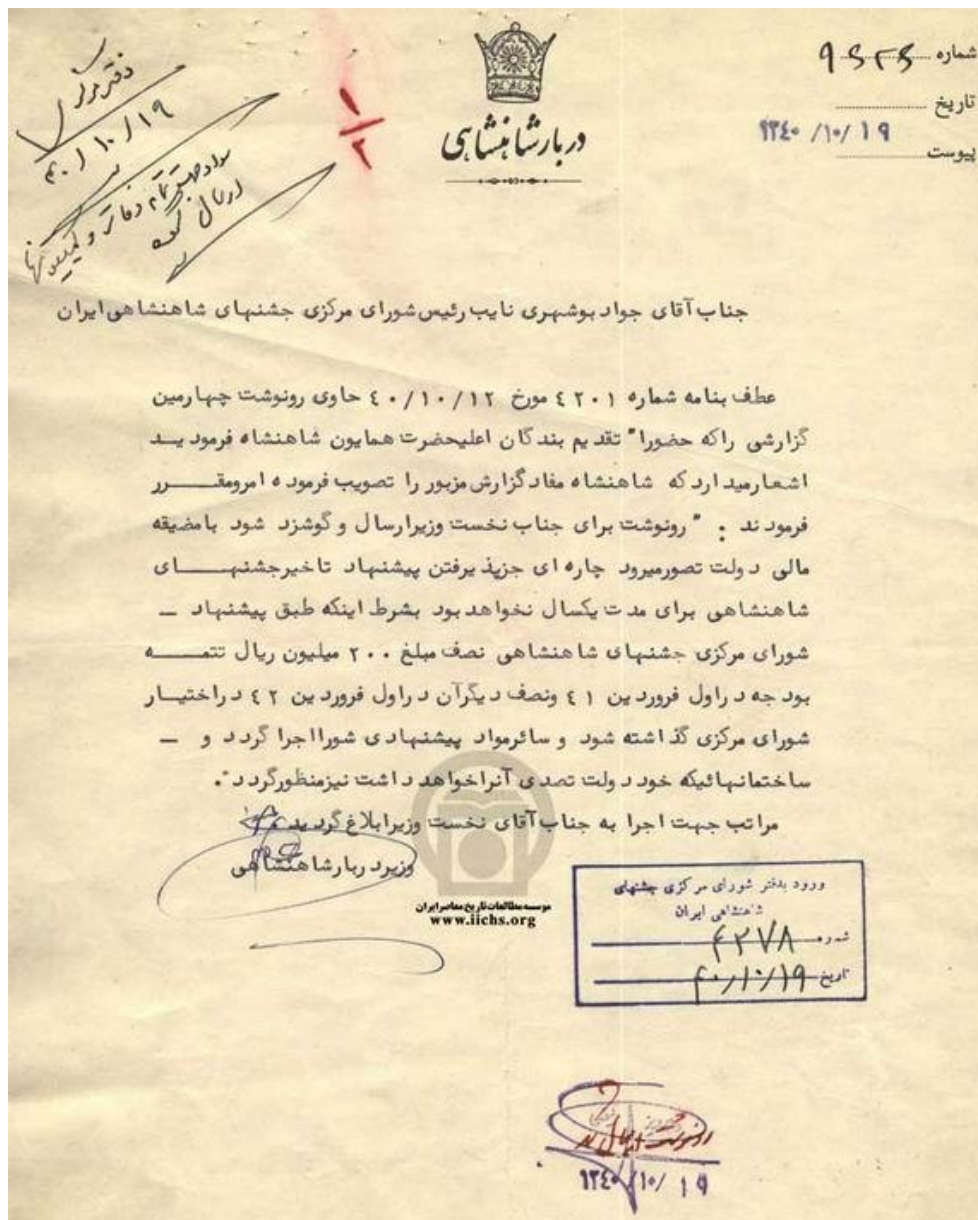 شماره
تاریخ
۱۳۴۰/۱۰/۱۹
پیوست
دربار شاهنشاهی
۱/۲
دفتر مرکزی
۴۰/۱۰/۱۹
ارسال
جناب آقای جواد بوشهری نایب رئیس شورای مرکزی جشنهای شاهنشاهی ایران
عطف بنامه شماره ۴۲۰۱ مورخ ۴۰/۱۰/۱۲ حاوی رونوشت چهارمین
گزارشی راکه حضورا" تقدیم بندگان اعلیحضرت همایون شاهنشاه فرمودیـد
اشعارمیدارد که شاهنشاه مفاد گزارش مزبور را تصویب فرموده امرومقـــرر
فرمودند : " رونوشت برای جناب نخست وزیرارسال و گوشزد شود بامضیقه
مالی دولت تصورمیرود چاره ای جزپذیرفتن پیشنهاد تاخیرجشنهـــــای
شاهنشاهی برای مدت یکسال نخواهدبود بشرط اینکه طبق پیشنهاد ـ
شورای مرکزی جشنهای شاهنشاهی نصف مبلغ ۲۰۰ میلیون ریال تتمـــه
بودجه دراول فروردین ۴۱ ونصف دیگرآن دراول فروردین ۴۲ دراختیـار
شورای مرکزی گذاشته شود و سائرمواد پیشنهادی شورااجرا گردد و ـ
ساختمانهائیکه خود دولت تصدی آنراخواهد داشت نیزمنظورگردد".
مراتب جهت اجرا به جناب آقای نخست وزیرابلاغ گردید
وزیردربارشاهنشاهی
موسسه مطالعات تاریخ معاصر ایران
www.iichs.org
ورود بدفتر شورای مرکزی جشنهای
شاهنشاهی ایران
شماره ۴۲۷۸
تاریخ ۴۰/۱۰/۱۹
رونوشت ارسال شد
۱۳۴۰/۱۰/۱۹